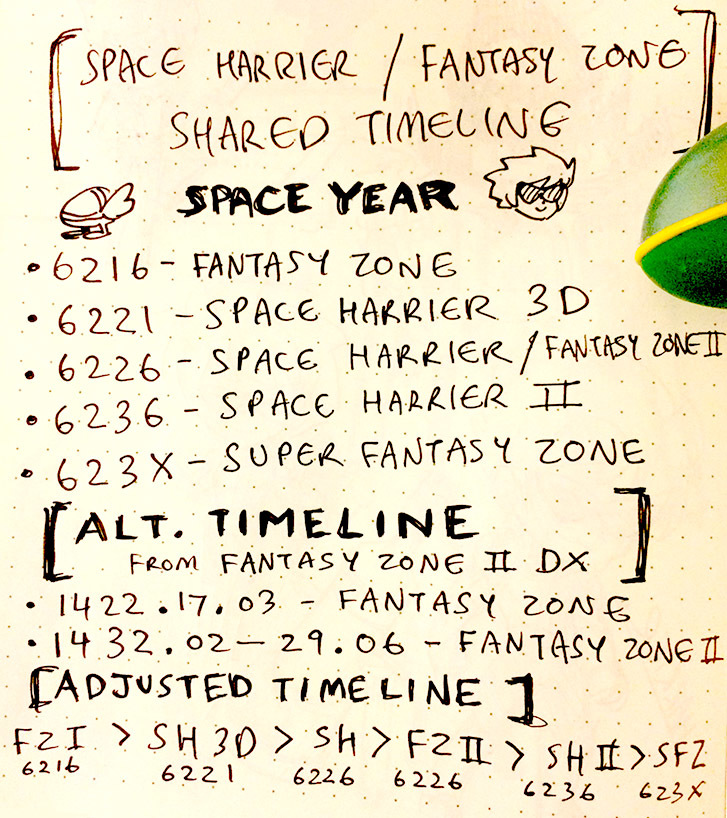 [SPACE HARRIER / FANTASY ZONE
SHARED TIMELINE]
SPACE YEAR
• 6216 - FANTASY ZONE
• 6221 - SPACE HARRIER 3D
• 6226 - SPACE HARRIER / FANTASY ZONE II
• 6236 - SPACE HARRIER II
• 623X - SUPER FANTASY ZONE
[ALT. TIMELINE
FROM FANTASY ZONE II DX]
• 1422.17.03 - FANTASY ZONE
• 1432.02—29.06 - FANTASY ZONE II
[ADJUSTED TIMELINE]
FZI > SH3D > SH > FZII > SHII > SFZ
6216 6221 6226 6226 6236 623X